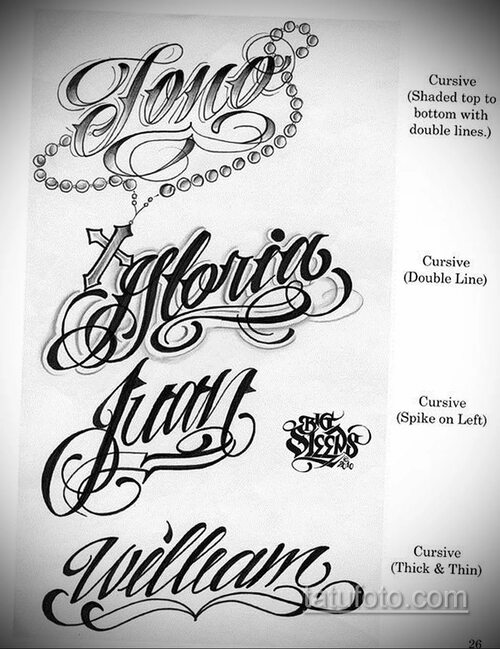 Cursive
(Shaded top to
bottom with
double lines.)
Astoria
Cursive
(Double Line)
Juan
Cursive
(Spike on Left)
BIG
SLEEPS
©
2010
William
Cursive
(Thick & Thin)
tatufoto.com
26